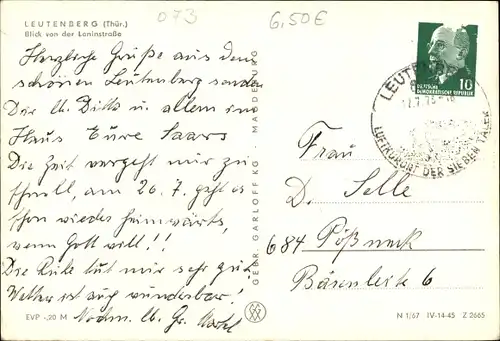 073
6,50€
LEUTENBERG (Thür.)
Blick von der Leninstraße
Herzliche Grüße aus dem
schönen Leutenberg senden
Dir u. Dita u. allem im
Haus Eure Saars
Die Zeit vergeht mir zu
schnell, am 26.7. geht es
schon wieder heimwärts,
wenn Gott will!!!
Die Ruhe tut mir sehr gut,
Wetter ist auch wunderbar!
Nochm. lb. Gr.
EVP -,20 M
GEBR. GARLOFF KG · MAGDEBURG
DEUTSCHE
DEMOKRATISCHE REPUBLIK
10
LEUTENBERG
LUFTKURORT DER SIEBEN TÄLER
Frau
D. Selle
684 Pößneck
Bärenleite 6
N 1/67 IV-14-45 Z 2665